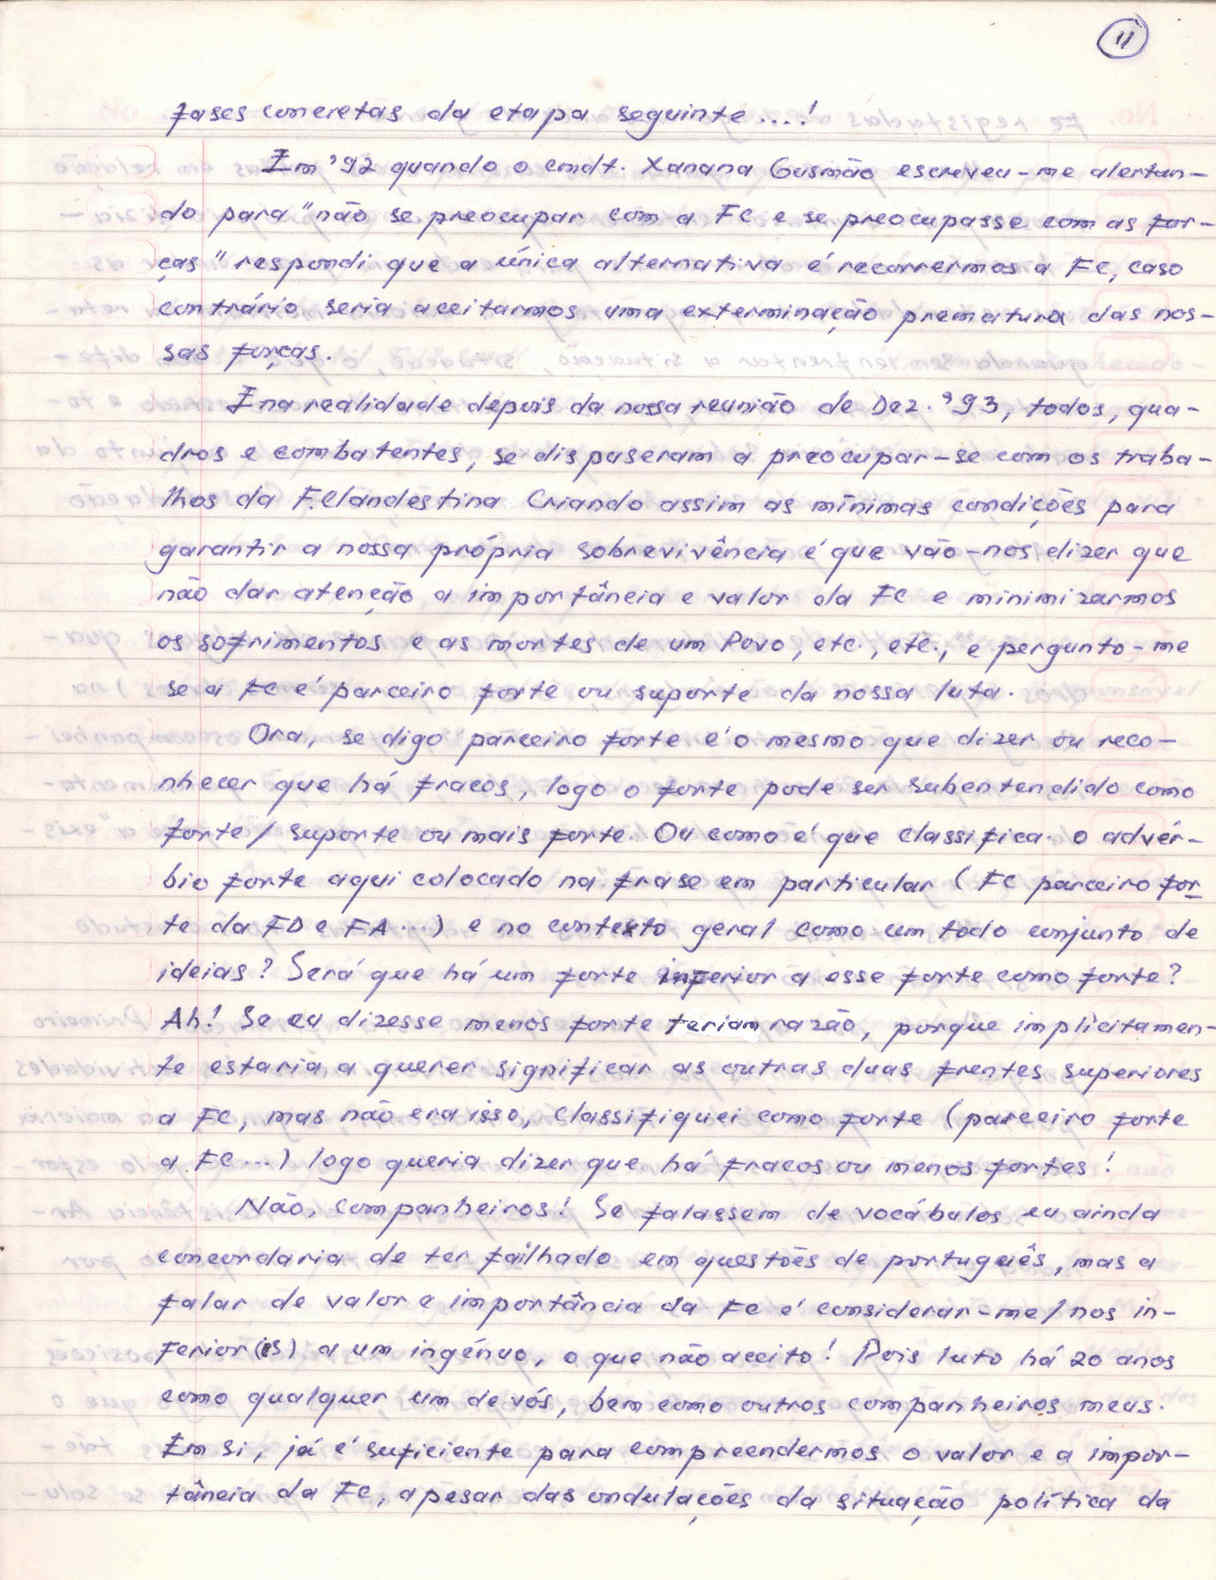 11
fases concretas da etapa seguinte....!
Em '92 quando o cmdt. Xanana Gusmão escreveu-me alertan-
do para "não se preocupar com a FC e se preocupasse com as for-
ças" respondi que a única alternativa é recorrermos a FC, caso
contrário seria aceitarmos uma exterminação prematura das nos-
sas forças.
E na realidade depois da nossa reunião de Dez. '93, todos, qua-
dros e combatentes, se dispuseram a preocupar-se com os traba-
lhos da F.Clandestina Criando assim as mínimas condições para
garantir a nossa própria sobrevivência é que vão-nos dizer que
não dar atenção a importância e valor da FC e minimizarmos
os sofrimentos e as mortes de um Povo, etc., etc., e pergunto-me
se a FC é parceiro forte ou suporte da nossa luta.
Ora, se digo parceiro forte é o mesmo que dizer ou reco-
nhecer que há fracos, logo o forte pode ser subentendido como
forte/suporte ou mais forte. Ou como é que classifica o advér-
bio forte aqui colocado na frase em particular (FC parceiro for
te da FD e FA...) e no contexto geral como um todo conjunto de
ideias? Será que há um forte inferior a esse forte como forte?
Ah! Se eu dizesse menos forte teriam razão, porque implìcitamen-
te estaria a querer significar as outras duas frentes superiores
a FC, mas não era isso, classifiquei como forte (parceiro forte
a FC...) logo queria dizer que há fracos ou menos fortes!
Não, companheiros! Se falassem de vocábulos eu ainda
concordaria de ter failhado em questões de português, mas a
falar de valor e importância da FC é considerar-me/nos in-
ferior(es) a um ingénuo, o que não aceito! Pois luto há 20 anos
como qualquer um de vós, bem como outros companheiros meus.
Em si, já é suficiente para compreendermos o valor e a impor-
tância da FC, apesar das ondulações da situação política da